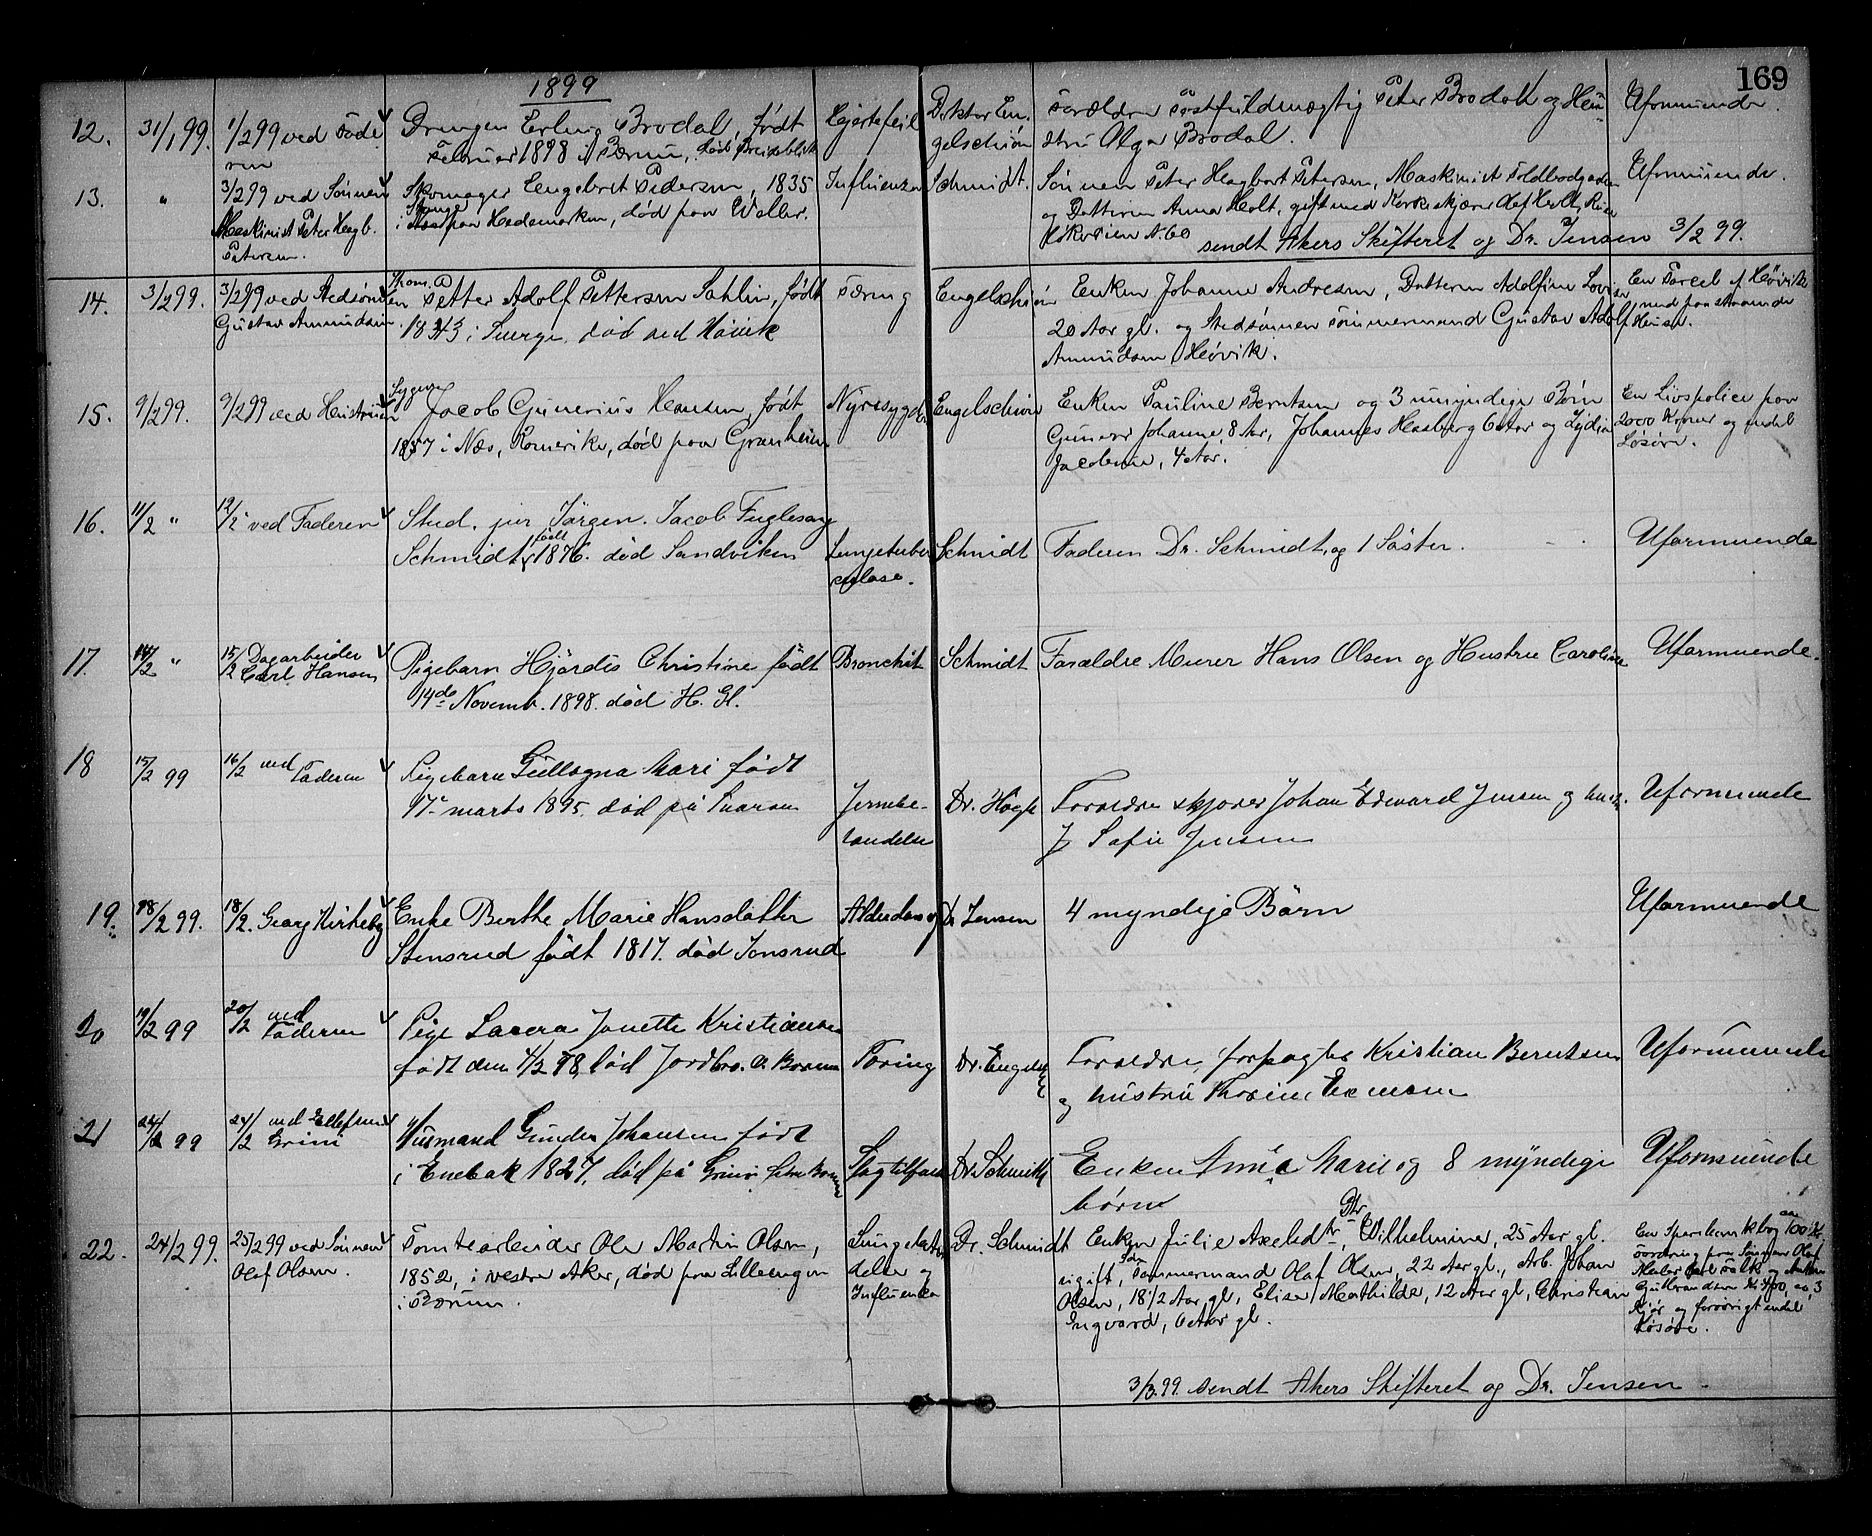 169
1899
12. 31/1 99. 1/2 99 ved Fade Drengen Erling Brodal, født Hjertefeil Doktor En- Forældre Postfuldmægtig Peter Brodal og Hu- Uformuende.
ren Februar 1898 i Bærum, død gelschiøn stru Olga Brodal.
13. " 3/2 99 ved Sønnen Skomager Engebret Pedersen, 1835 Influenza Schmidt. Sønnen Peter Hagbart Petersen, Maskinist Toldbodgaden Uformuende.
Maskinist Peter Hagb. i Stange paa Hedemarken, død paa og Datteren Anna Holt, gift med Korkskjærer
Petersen. No. 60 sendt Akers Skifteret og Dr. Jensen 3/2 99.
14. 3/2 99. 3/2 99 ved Stedsønnen Petter Adolf Pettersen Sahlin, født Tæring Engelschiøn Enken Johanne Andresen, Datteren Adolfine En Parcel af Høvik
Gustav Amundsen. 1843 i Sverge, død ved Høvik 20 Aar gl. og Stedsønnen Tømmermand Gustav Adolf med paastaaende Huse.
Amundsen, Høvik.
15. 9/2 99. 9/2 99 ved Hustruen Jacob Gunerius Hansen, født Nyresygd. Engelschiøn Enken Pauline Berntsen og 3 umyndige Børn En Livspolice paa
1857 i Næs, Romerike, død paa Granheim Johanne, 8 Aar, Johannes 6 Aar og Lydia 2000 Kroner og endel
Jacobine, 4 Aar. Løsøre.
16. 11/2 " 12/2 ved Faderen Stud. jur Jørgen Jacob Fuglesang
Schmidt, født 1876. død Sandviken Lungetuber Schmidt Faderen Dr. Schmidt, og 1 Søster. Uformuende
culose.
17. 14/2 " 15/2 Dagarbeider Pigebarn Hjørdis Christine født Bronchit Schmidt Forældre Murer Hans Olsen og Hustru Caroline Uformuende.
Carl Hansen 14de Novemb. 1898. død H. Gl.
18 15/2 99 16/2 ved Faderen Pigebarn Gullagna Mari født
17. marts 1895. død på Dr. Høyh Forældre skjører Johan Edward Jensen og hustr. Uformuende
J Sofie Jensen
19. 18/2 99. 18/2. Georg Kirkeby Enke Berthe Marie Hansdatter Alderdoms Dr Jensen 4 myndige Børn Uformuende
Stensrud født 1817. død Jonsrud
20 19/2 99 20/2 ved Faderen Pige Laura Janette Kristiansen
født den 4/2 98, død Jordbro. Ø. Bærum Tæring Dr. Engelsch Forældre, forpagter Kristian Berntsen Uformuende
og hustru Thorine
21 22/2 99 24/2 ved Ellefsen Husmand Gunder Johansen født
Grini i Enebak 1827, død på Grini Slagtilfælde Dr. Schmidt Enken Anne Marie og 8 myndige Uformuende
børn
22. 24/2 99. 25/2 99 ved Sønnen Tomtearbeider Ole Martin Olsen, Lungebetæn Dr. Schmidt Enken Julie Axelsd. Dtr. Vilhelmine, 25 Aar gl. En Sparebankbog
Olaf Olsen. 1852, i Vestre Aker, død paa Lilleengen delse og ugift, Tømmermand Olaf Olsen, 22 Aar gl., Arb. Johan Fordring paa Sønnen Olaf
i Bærum. Influenza Olsen, 18 1/2 Aar gl, Elise Mathilde, 12 Aar gl, Christian
Ingvard, 6 Aar gl. Kjør og forøvrigt endel
Løsøre.
3/3 99. sendt Akers Skifteret og Dr. Jensen.